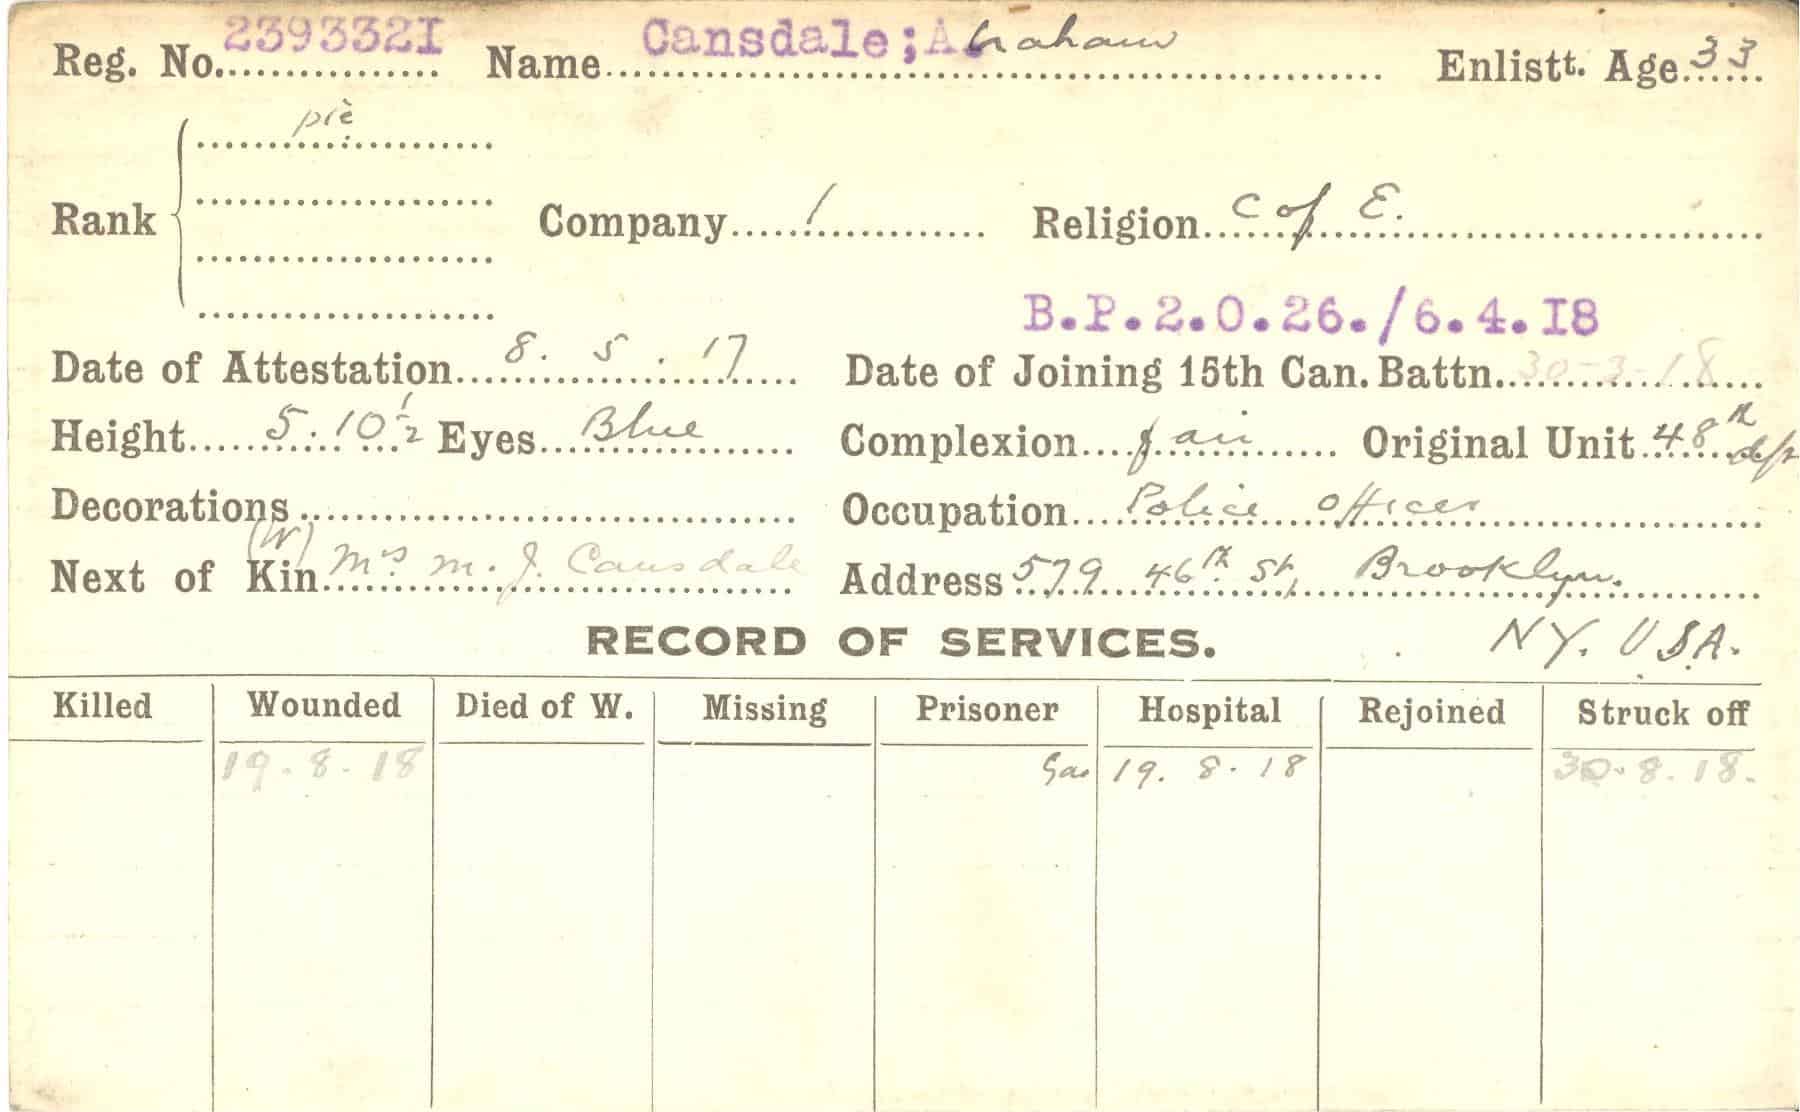 Reg. No. 2393321 Name Cansdale; Abraham Enlistt. Age 33
pte
Rank Company 1 Religion C of E.
B.P.2.0.26./6.4.18
Date of Attestation 8. 5. 17 Date of Joining 15th Can. Battn. 30-3-18
Height 5. 10 1/2 Eyes Blue Complexion fair Original Unit 48th
Decorations Occupation Police Officer
Next of Kin (W) Mrs. M. J. Cansdale Address 579. 46th St, Brooklyn.
RECORD OF SERVICES. NY. USA.
Killed Wounded Died of W. Missing Prisoner Hospital Rejoined Struck off
19. 8. 18 Gas 19. 8. 18 30. 8. 18.